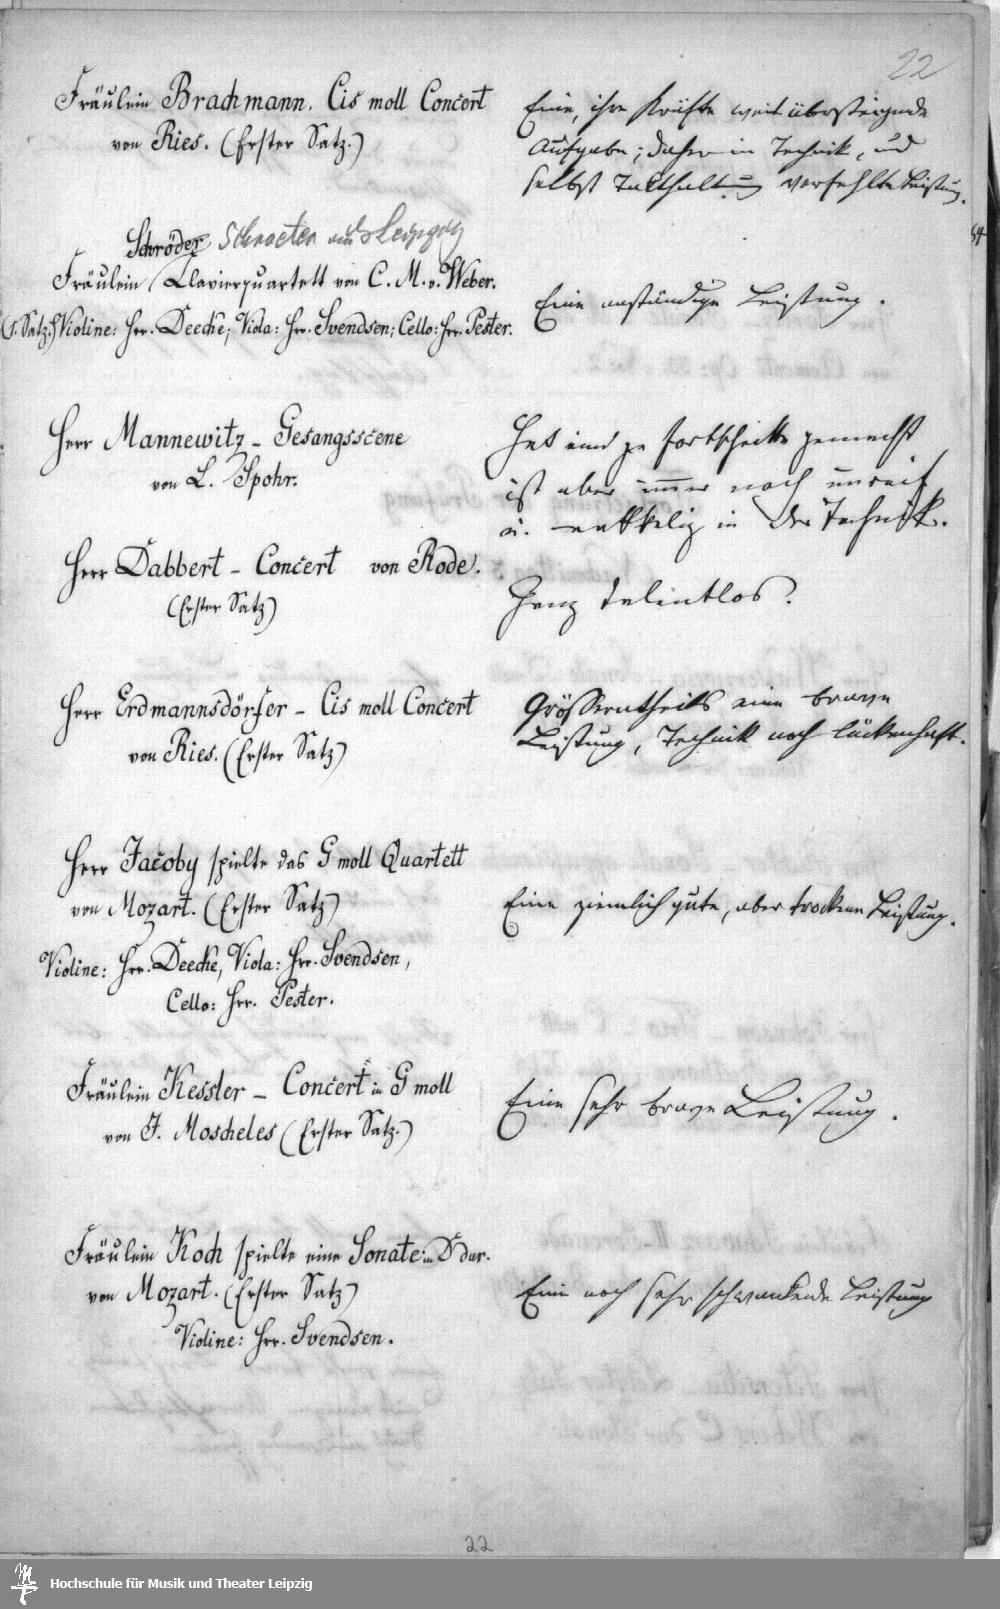 22
Fräulein Brachmann. Cis moll Concert
von Ries. (Erster Satz.)
Eine, ihre Kräfte weit übersteigende
Aufgabe; daher in Technik, und
selbst Takthaltung verfehlte Leistung.
Schröder Schroeter aus Leipzig
Fräulein Clavierquartett von C. M. v. Weber.
(1. Satz.) Violine: Hrr. Deecke; Viola: Hrr. Svendsen; Cello: Hrr. Pester.
Eine anständige Leistung.
Herr Mannewitz – Gesangsscene
von L. Spohr.
Hat Fortschritte gemacht
ist aber immer noch unreif
u. in der Technik.
Herr Dabbert – Concert von Rode.
(Erster Satz)
Ganz talentlos.
Herr Erdmannsdörfer – Cis moll Concert
von Ries. (Erster Satz)
Grösserntheils eine brave
Leistung, Technik noch lückenhaft.
Herr Jacoby spielte das G moll Quartett
von Mozart. (Erster Satz)
Violine: Hrr. Deecke, Viola: Hrr. Svendsen,
Cello: Hrr. Pester.
Eine ziemlich gute, aber trockene Leistung.
Fräulein Kessler – Concert in G moll
von J. Moscheles (Erster Satz.)
Eine sehr brave Leistung.
Fräulein Koch spielte eine Sonate in D dur.
von Mozart. (Erster Satz)
Violine: Hrr. Svendsen.
Eine noch sehr schwankende Leistung
22
Hochschule für Musik und Theater Leipzig